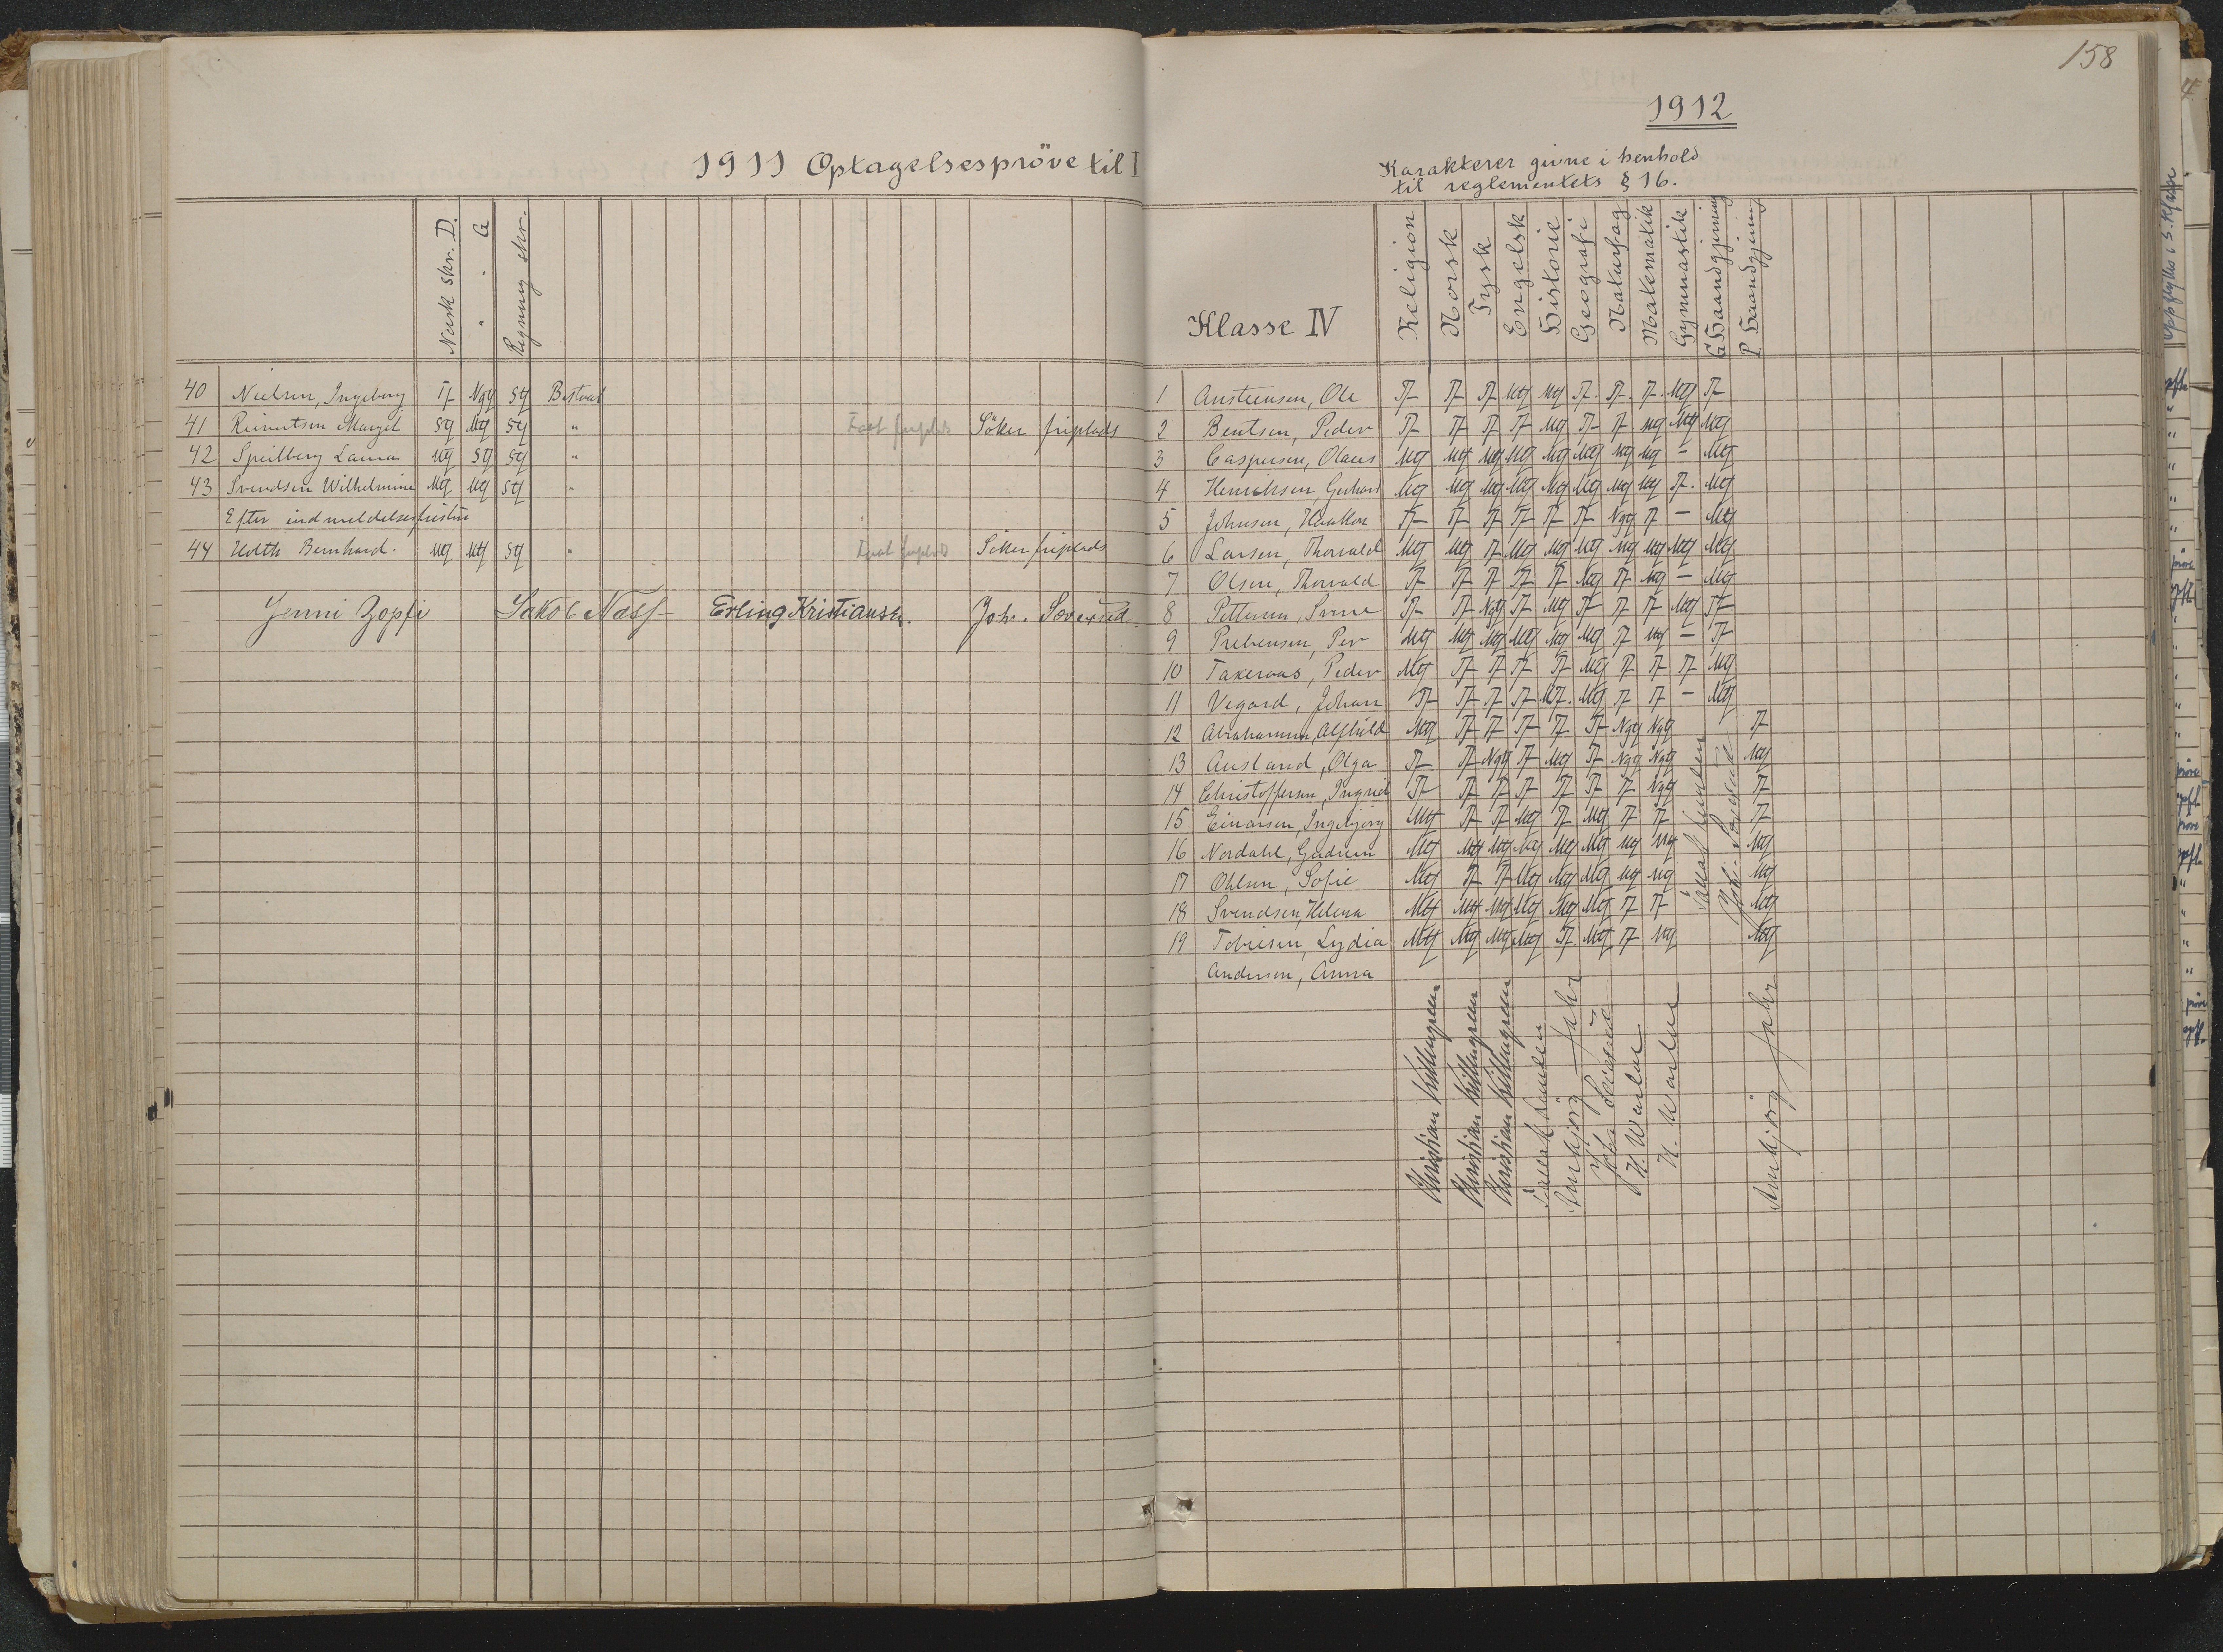 1911 Optagelsespröve til I
Norsk skr. D.
" - G
Regning skr.
40 Nielsen, Ingeborg Tf Ng Sg Bestaat
41 Reinertsen Margit Sg Mg Sg " Faat friplads Söker friplads
42 Speilberg Laura Mg Sg Sg "
43 Svendsen Wilhelmine Mg Mg Sg "
Efter indmeldelsesfristen
44 Holth Bernhard. Mg Mg Sg " Faat friplads Söker friplads
Jenni Zopfi Jakob Næss Erling Kristiansen. Joh. Soverud
158
1912
Karakterer givne i henhold
til reglementets § 16.
Klasse IV Religion Norsk Tysk Engelsk Historie Geografi Naturfag Matematik Gymnastik G. Haandgjerning P. Haandgjerning
1 Austeensen, Ole Tf Tf Tf Mg Mg Tf. Tf. Tf. Mg Tf
2 Bentsen, Peder Tf Tf Tf Tf Mg Tf Tf Mg Mg Mg
3 Caspersen, Olaus Mg Mg Mg Mg Mg Mg Mg Mg – Mg
4 Henriksen, Gerhard Mg Mg Mg Mg Mg Mg Mg Mg Tf. Mg
5 Johnsen, Haakon Tf Tf Tf Tf Tf Tf Ng Tf – Mg
6 Larsen, Thorvald Mg Mg Tf Mg Mg Mg Mg Mg Mg Mg
7 Olsen, Thorvald Tf Tf Tf Tf Tf Mg Tf Mg – Mg
8 Pettersen, Sverre Tf Tf Ng Tf Mg Tf Tf Tf Mg Tf
9 Prebensen, Per Mg Mg Mg Mg Mg Mg Tf Mg – Tf
10 Taxeraas, Peder Mg Tf Tf Tf Tf Mg Tf Tf Tf Mg
11 Vegard, Johan Tf Tf Tf Tf Mg. Mg Tf Tf – Mg
12 Abrahamsen, Alfhild Mg Tf Tf Tf Tf Tf Ng Ng Tf
13 Ausland, Olga Tf Tf Ng Tf Mg Tf Ng Ng Mg
14 Christoffersen, Ingrid Tf Tf Tf Tf Tf Tf Tf Ng Tf
15 Einarsen, Ingebjørg Mg Tf Tf Mg Tf Mg Tf Tf Tf
16 Nordahl, Gudrun Mg Mg Mg Mg Mg Mg Mg Mg Mg
17 Ohlsen, Sofie Mg Tf Tf Mg Mg Mg Mg Mg Mg
18 Svendsen, Helena Mg Mg Mg Mg Mg Mg Tf Tf Mg
19 Tobiesen, Lydia Mg Mg Mg Mg Tf. Mg Tf Mg Mg
Andersen, Anna
Joh. Soverud
Kristian Killengreen
Kristian Killengreen
Kristian Killengreen
Annbjørg Fahr
Joh. Soverud
Annbjørg Fahr